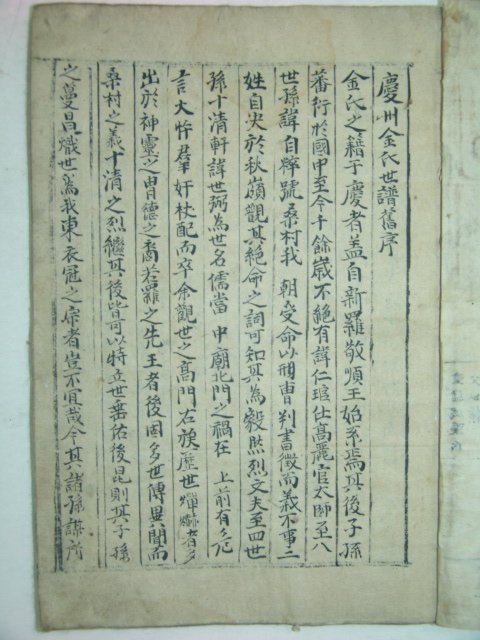 慶州金氏世譜舊序
金氏之籍于慶者盖自新羅敬順王始系焉其後子孫
蕃衍於國中至今千餘歲不絶有諱仁琯仕高麗官太師至八
世孫諱自粹號桑村我 朝受命以刑曹判書徵而義不事二
姓自决於秋嶺觀其絶命之詞可知其爲毅然烈丈夫至四世
孫十清軒諱世弼爲世名儒當 中廟北門之禍在 上前有
言大忤羣奸杖配而卒余觀世之高門右族歷世燀爀者多
出於神靈之冑德之裔若羅之先王者後因多世傳異聞而
桑村之義十清之烈繼其後皆可以特立世垂佑後昆則其子孫
之蔓昌熾世爲我東衣冠之宗者豈不宜哉今其諸孫謀所